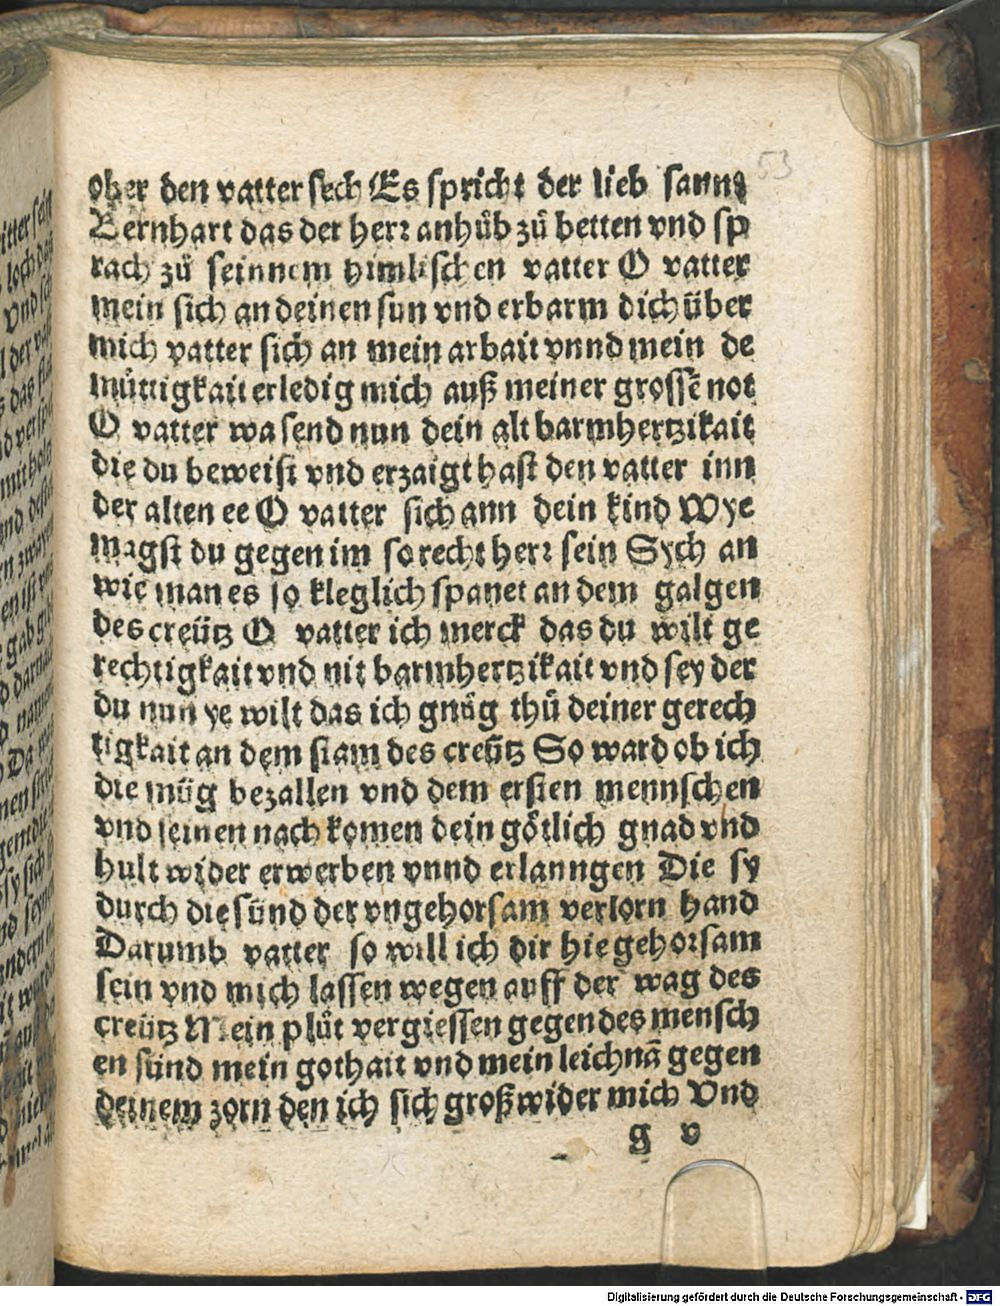 ober den vatter sech Es spricht der lieb sannt
Bernhart das der herr anhůb zů betten vnd sp
rach zů seinnem himlischen vatter O vatter
mein sich an deinen sun vnd erbarm dich über
mich vatter sich an mein arbait vnnd mein de
müttigkait erledig mich auß meiner grossē not
O vatter wa send nun dein alt barmhertzikait
die du beweist vnd erzaigt hast den vatter inn
der alten ee O vatter sich ann dein kind Wye
magst du gegen im so recht herr sein Sych an
wie man es so kleglich spanet an dem galgen
des creütz O vatter ich merck das du wilt ge
rechtigkait vnd nit barmhertzikait vnd sey der
du nun ye wilt das ich gnůg thů deiner gerech
tigkait an dem stam des creütz So ward ob ich
die müg bezallen vnd dem ersten mennschen
vnd seinen nach komen dein götlich gnad vnd
hult wider erwerben vnnd erlanngen Die sy
durch die sünd der vngehorsam verlorn hand
Darumb vatter so will ich dir hie gehorsam
sein vnd mich lassen wegen auff der wag des
creütz Mein plůt vergiessen gegen des mensch
en sünd mein gothait vnd mein leichnā gegen
deinem zorn den ich sich groß wider mich Vnd
g v
53
Digitalisierung gefördert durch die Deutsche Forschungsgemeinschaft - DFG